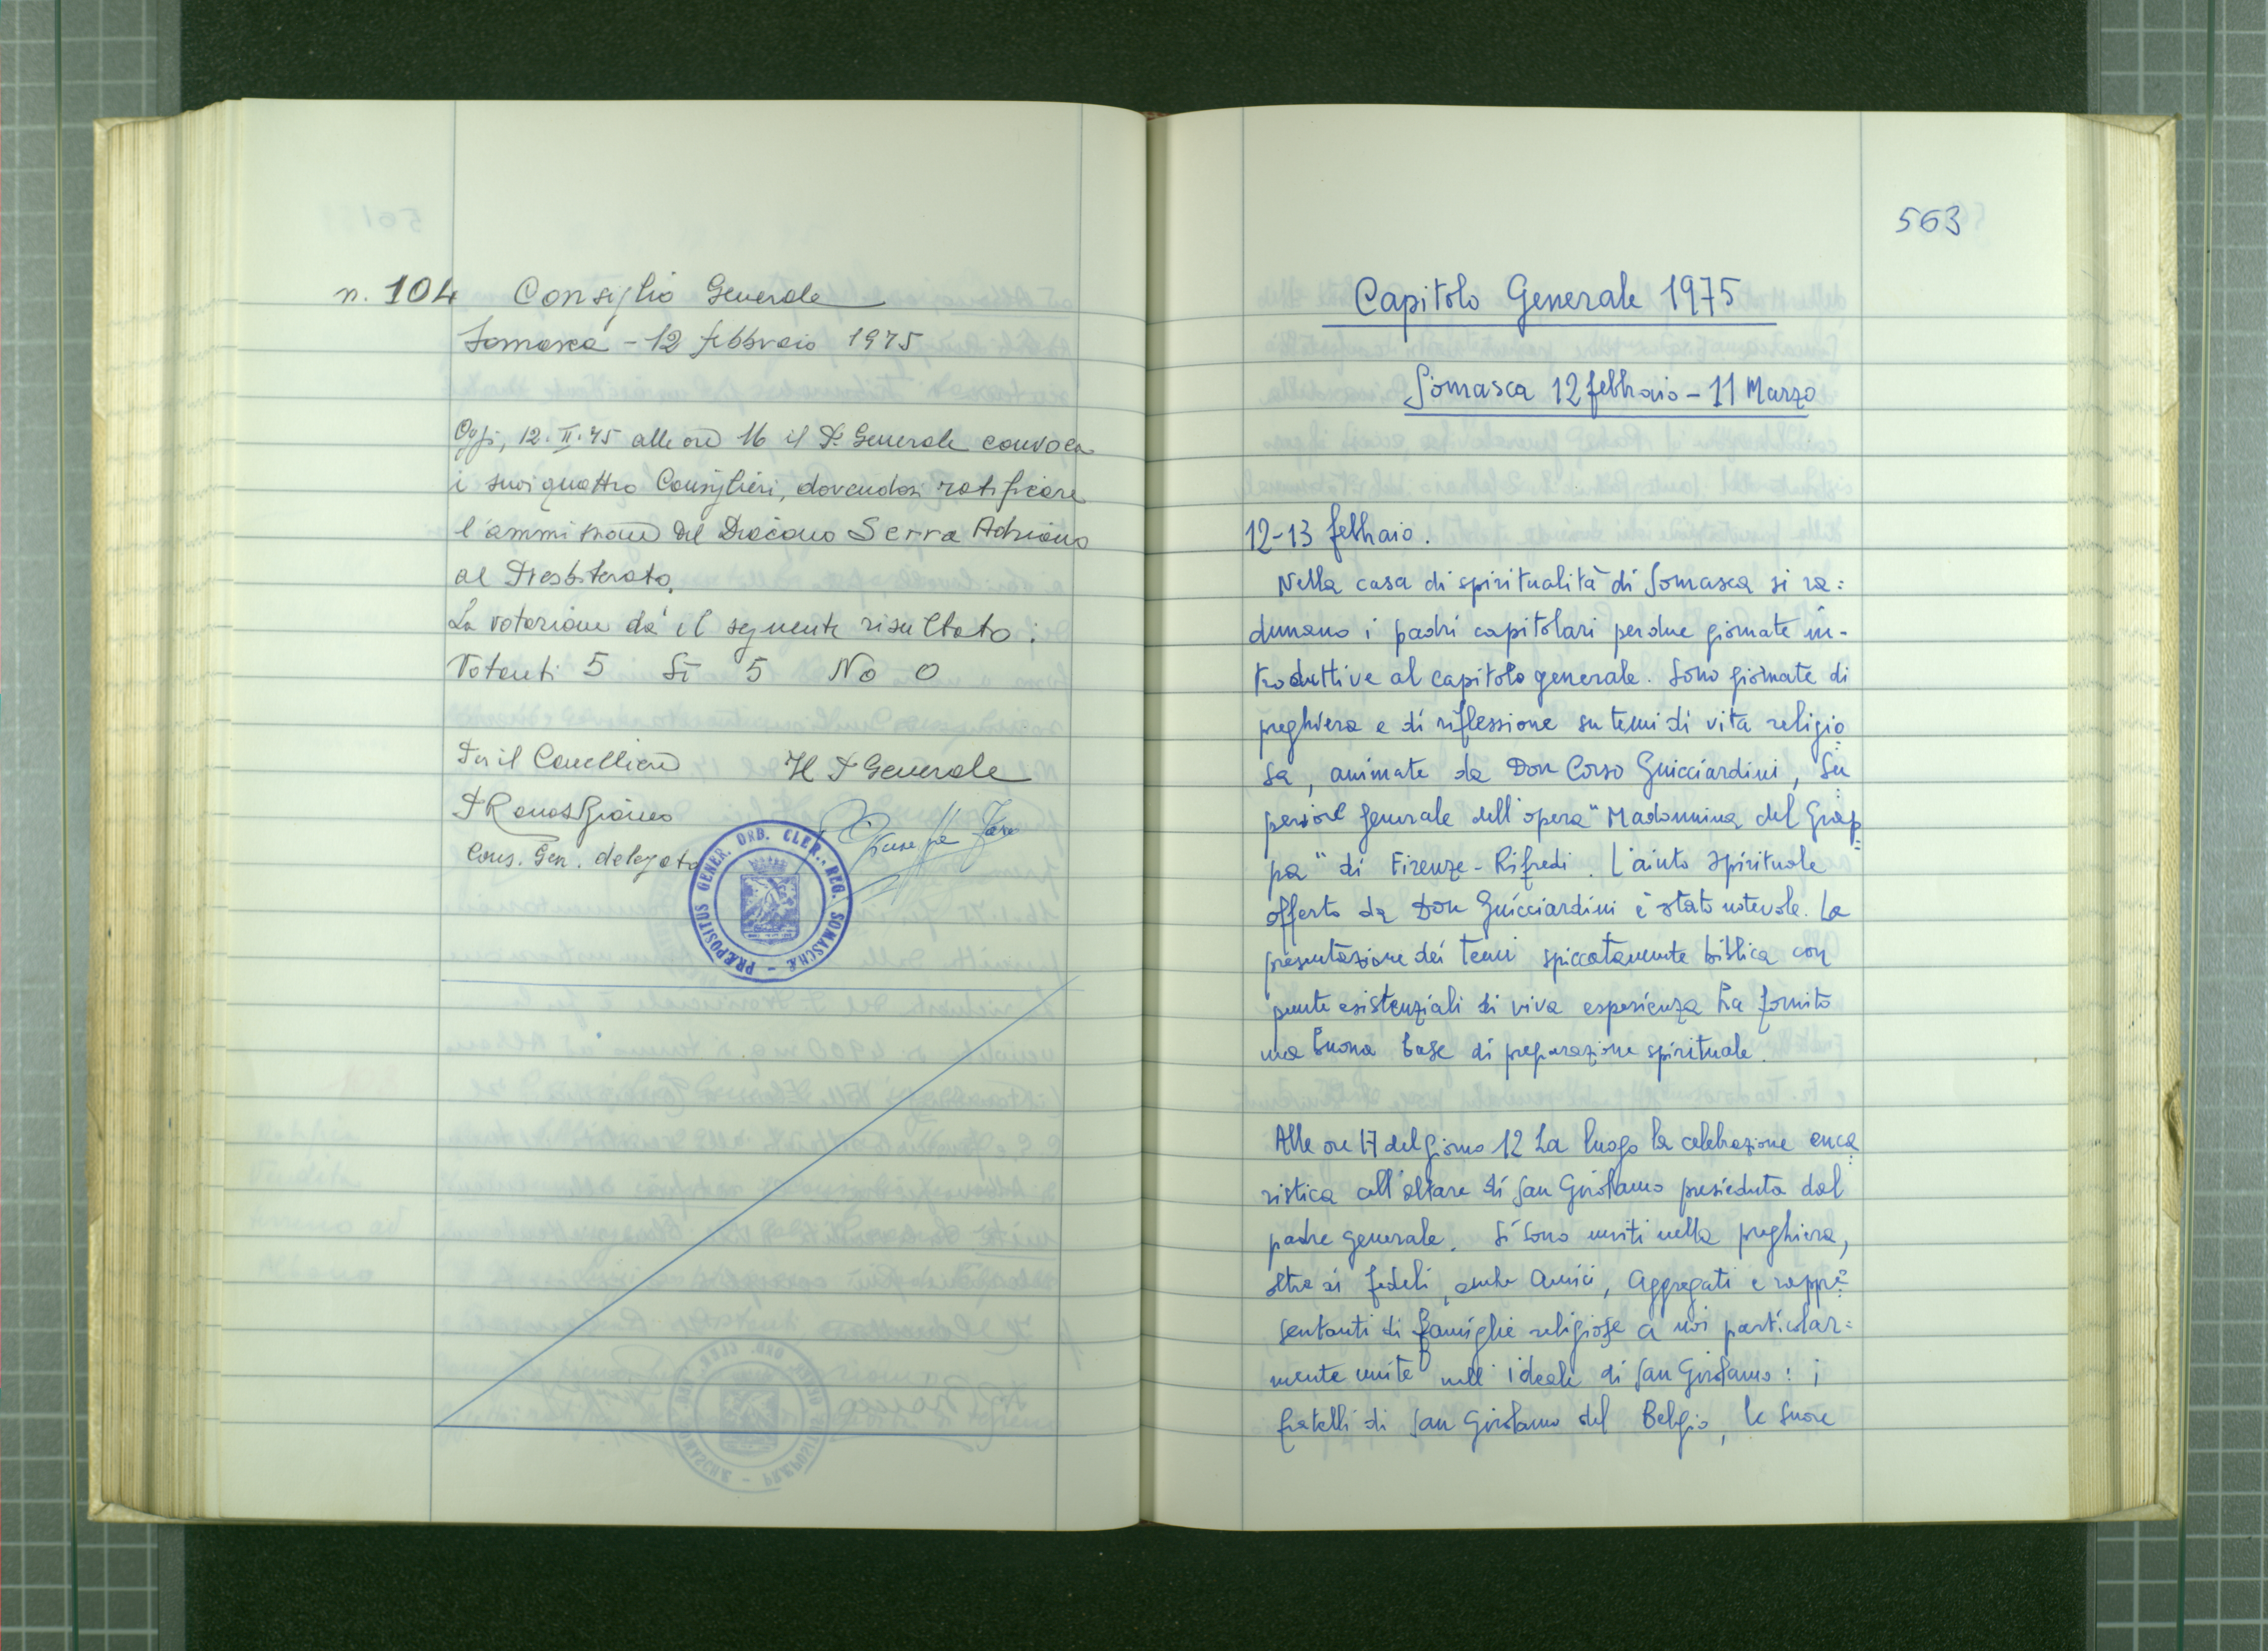 n. 104 Consiglio Generale
Somasca - 12 febbraio 1975
Oggi, 12.II.75 alle ore 16 il P. Generale convoca
i suoi quattro Consiglieri, dovendosi ratificare
l'ammissione del Diacono Serra Adriano
al Presbiterato.
La votazione dà il seguente risultato:
Votanti 5 Sì 5 No 0
Per il Cancelliere Il P Generale
P Bianco
Cons. Gen. delegato
PRÆPOSITUS GENER. ORD. CLER. REG. SOMASCHÆ -
563
Capitolo Generale 1975
Somasca 12 febbraio - 11 Marzo
12-13 febbraio.
Nella casa di spiritualità di Somasca si ra=
dunano i padri capitolari per due giornate in-
troduttive al capitolo generale. Sono giornate di
preghiera e di riflessione su temi di vita religio=
sa, animate da Don Corso Guicciardini, Su=
periore generale dell'opera "Madonnina del Grap=
pa" di Firenze - Rifredi. L'aiuto spirituale
offerto da Don Guicciardini è stato notevole. La
presentazione dei temi spiccatamente biblica con
punte esistenziali di viva esperienza ha fornito
una buona base di preparazione spirituale.
Alle ore 17 del giorno 12 ha luogo la celebrazione euca=
ristica all'altare di San Girolamo presieduta dal
padre generale. Si sono uniti nella preghiera,
oltre ai fedeli, anche Amici, Aggregati e rappre=
sentanti di famiglie religiose a noi particolar=
mente unite nell'ideale di San Girolamo: i
fratelli di San Girolamo del Belgio, le Suore